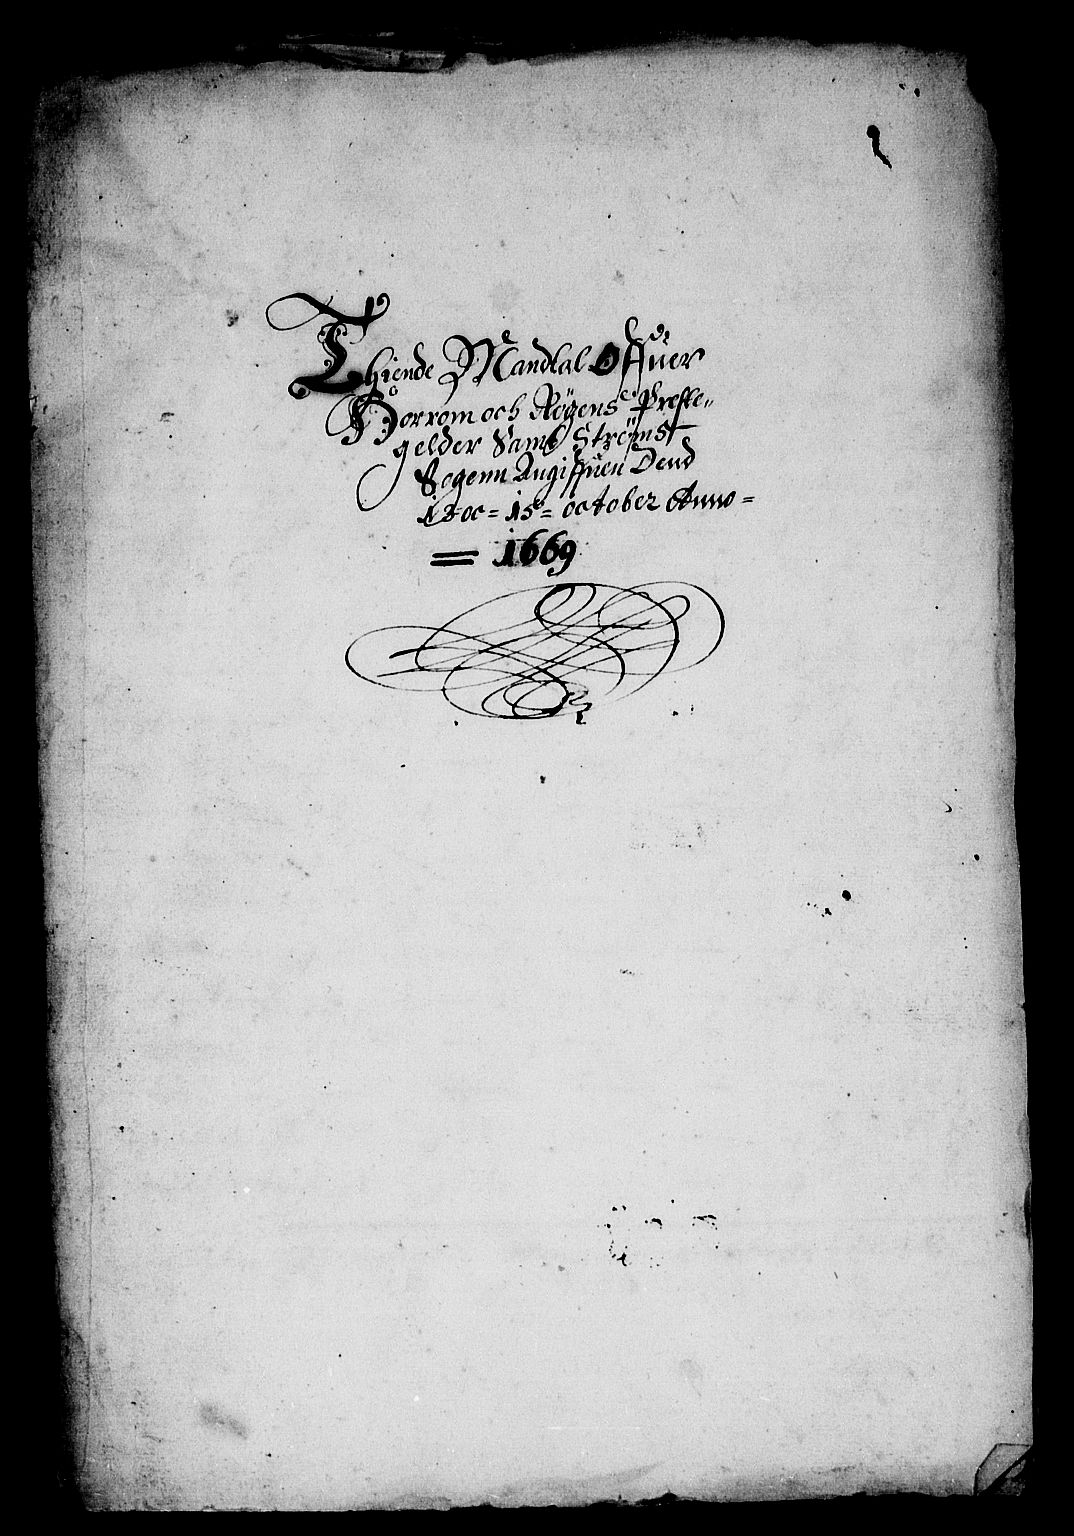 Thiende Mandtal Offuer
Hórrom och Rógens Preste-
gelder Samt Strøms
Sogenn Angiffuen Dend
15 october Anno =
= 1669